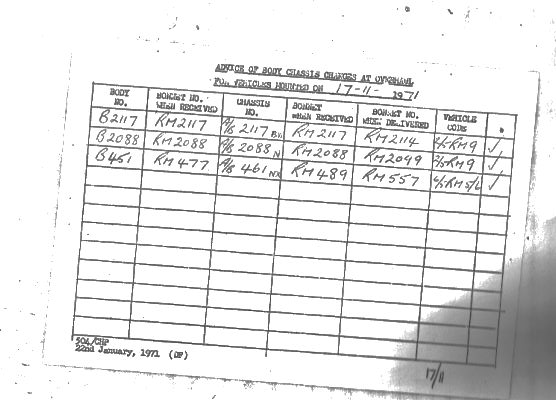 ADVICE OF BODY CHASSIS CHANGES AT OVERHAUL
FOR VEHICLES MOUNTED ON 17-11- 1971
BODY NO. BONNET NO. WHEN RECEIVED CHASSIS NO. BONNET WHEN RECEIVED BONNET NO. WHEN DELIVERED VEHICLE CODE
B2117 RM2117 2117 RM2117 RM2114 RM9 ✓
B2088 RM2088 2088 N RM2088 RM2049 RM9 ✓
B451 RM477 461 NX RM489 RM557 RM5/6 ✓
504/CHP
22nd January, 1971 (DF)
17/11